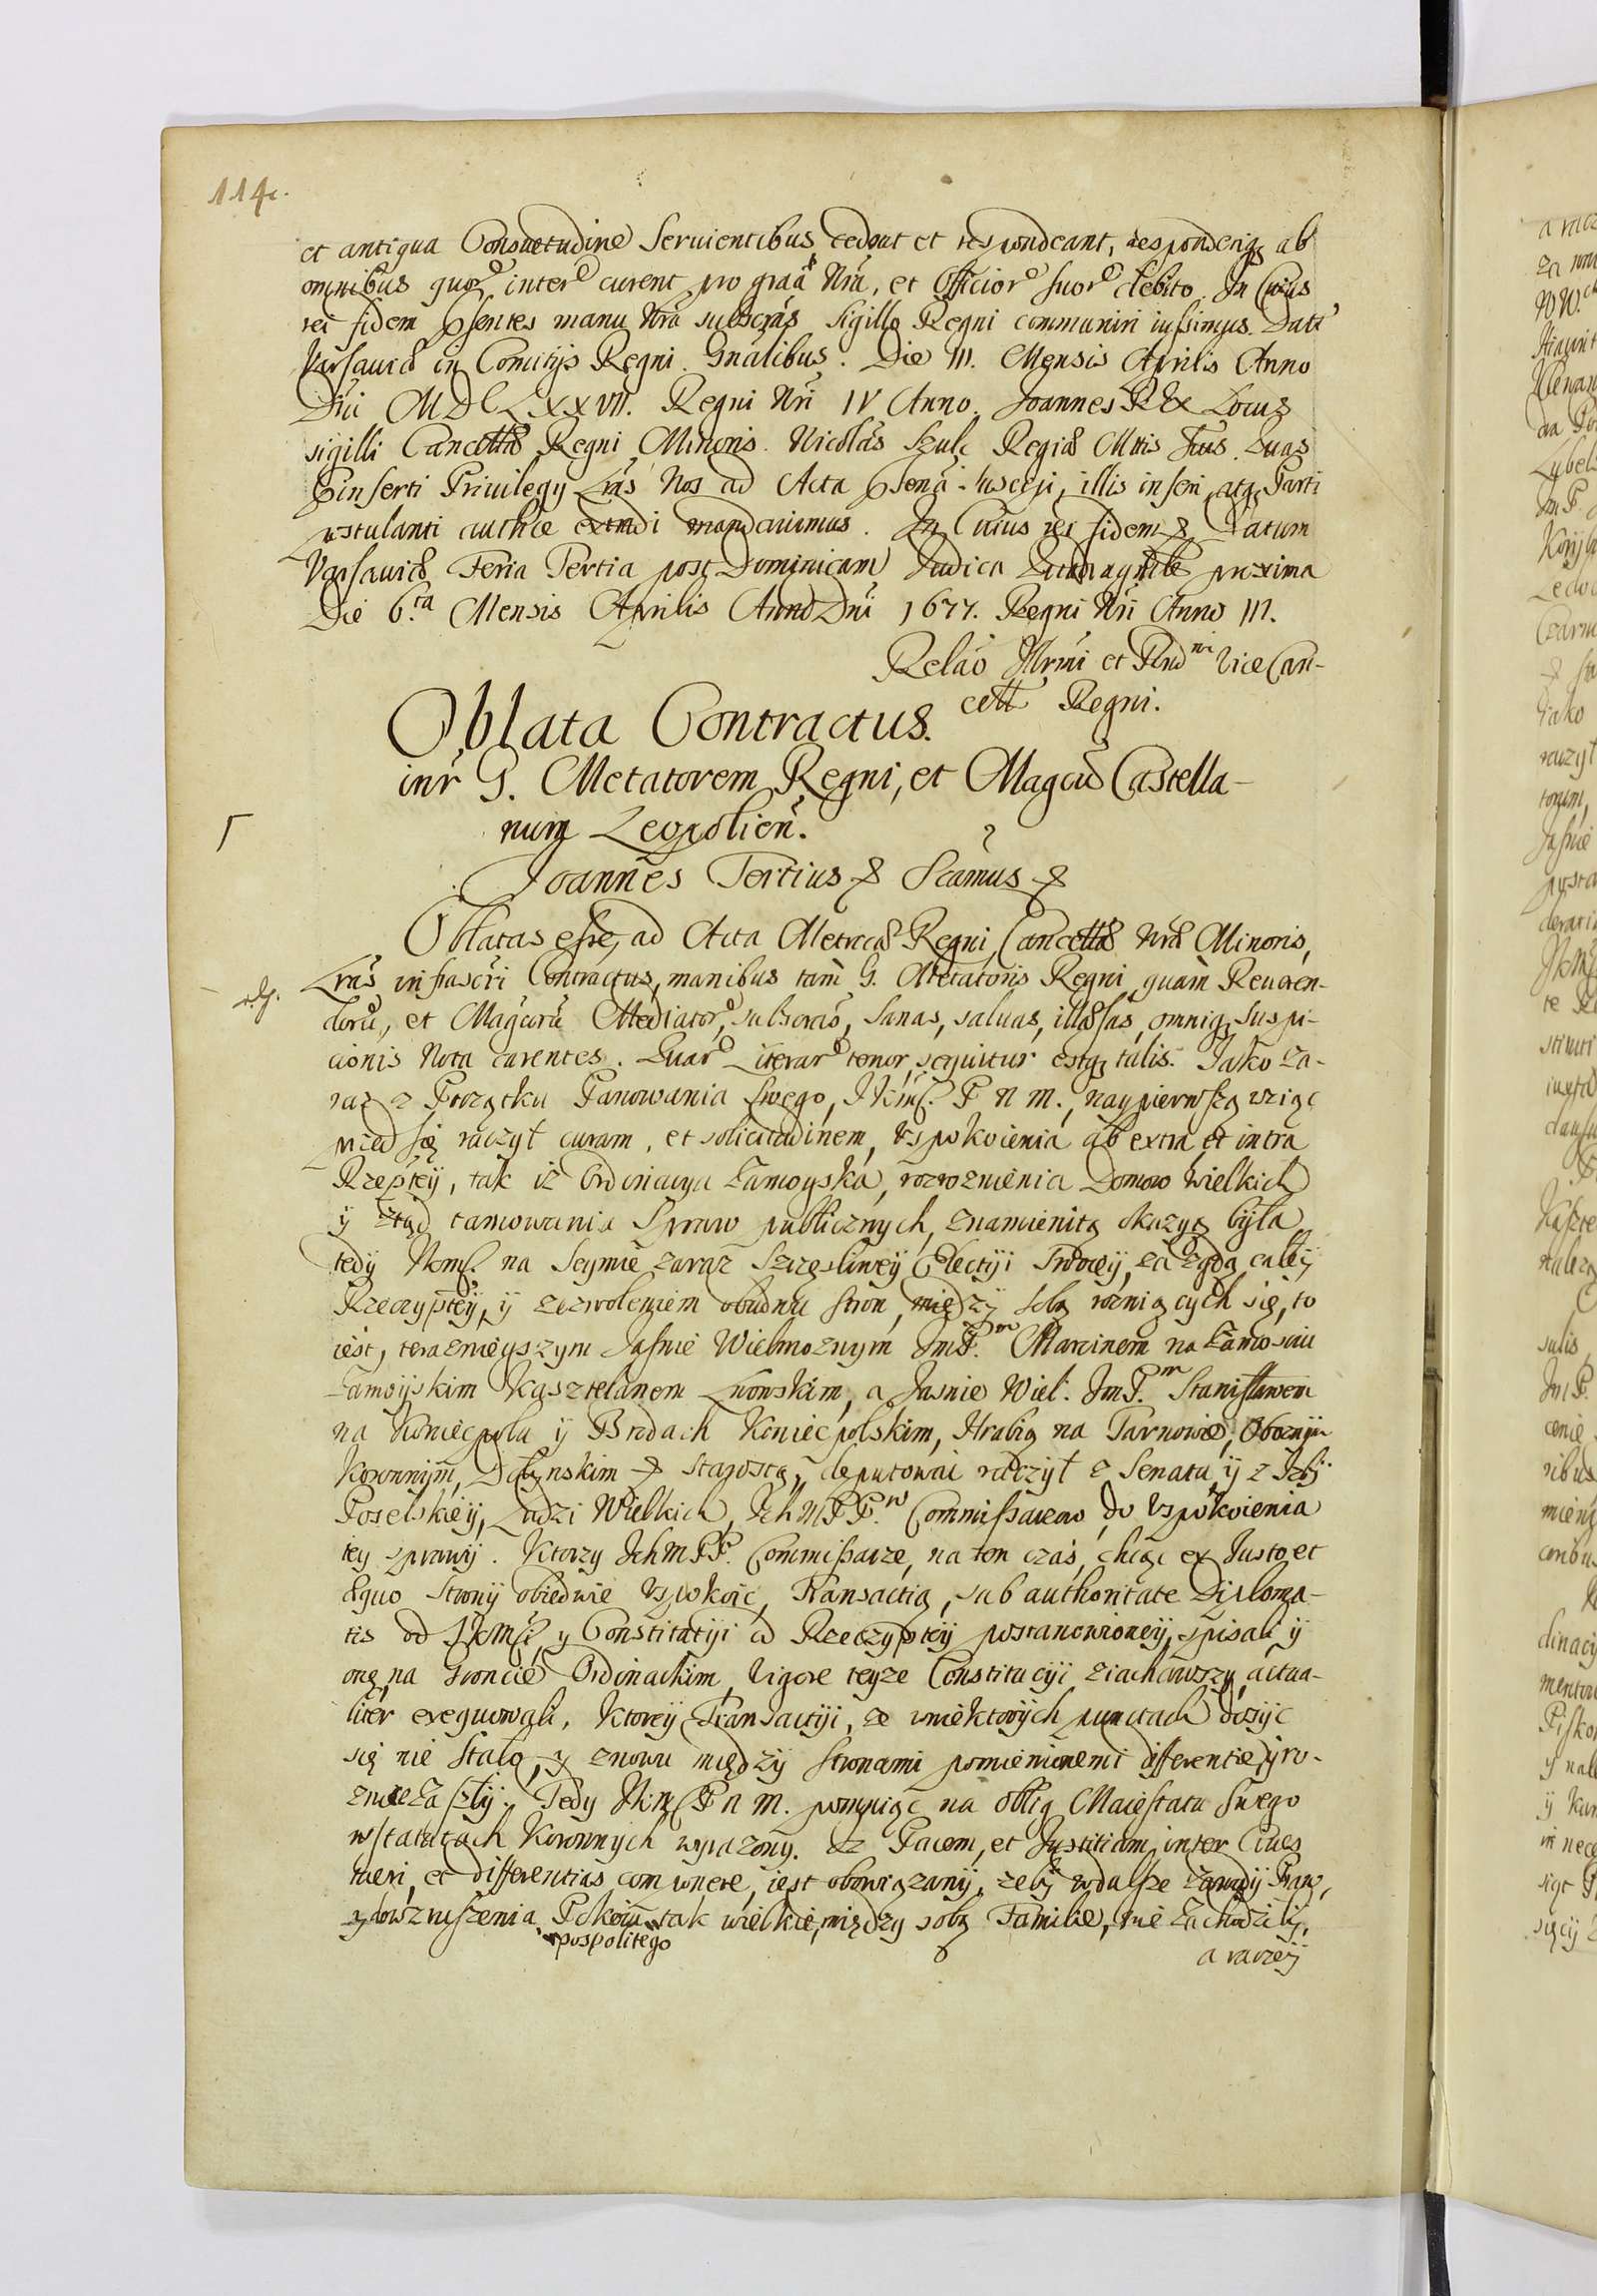 114.
et antiqua Consuetudine Seruientibus cedant et respondeant, responderiq3 ab
omnibus quor᷒ inter᷒ curent pro grãa Nrã, et Officior᷒ suor᷒ debito. In Cuius
rei fidem p̃sentes manu Nrã subscr̃as Sigillo Regni communiri iussimus. Datt
Varsauiæ in Comitijs Regni Gñalibus. Die III. Mensis Aprilis Anno
Dñi MDCLXXVII. Regni Nri IV Anno. Joannes Rex Locus
sigilli Cancellæ Regni Minoris. Nicolaus Szulc Regiæ Mttis Srius. Quas
p̃inserti Priuilegij Lrãs Nos ad Acta p̃senã suscepi, illis inseri, atq3 Parti
postulanti authce extradi mandauimus. In Cuius rei fidem & Datum
Varsauiæ Feria Tertia post Dominicam Judica Quadragesile proxima
Die 6.ta Mensis Aprilis Anno Dñi 1677. Regni Nri Anno III.
Relão Illrmi et Rnd mi Vice Can-
cell Regni.
Oblata Contractus.
intr G. Metatorem Regni, et Magcũ Castella-
num Leopolien̄.
Joannes Tertius & Scamus &
Oblatas esse, ad Acta Metricæ Regni, Cancellæ Nræ Minoris,
Lrãs infrascri Contractus, manibus tam G. Metatoris Regni, quàm Reueren-
dorũ, et Magcorũ Mediator᷒, subscrãs, sanas, saluas, illæsas, omniq3 suspi-
cionis Nota carentes. Quar᷒ Literar᷒ tenor sequitur estq3 talis. Jako za-
raz z Początku Panowania Swego, JKmść. P N M., naypierwszą wziąć
przed się raczył curam, et solicitudinem, Vspokoienia ab extra, et intra
Rzeptey, tak iż Ordinacya Zamoyska, rozroznienia Domow Wielkich
ÿ ztąd tamowania Spraw publicznych, znamienitą okazyą była,
tedy JKmść. na Seymie zaraz Szczęsliwey Electiji Swoieÿ, za zgodą całeÿ
Rzeczypteÿ, ÿ zezwoleniem obudwu stron, międzÿ sobą rozniących się, to
iest, terazniejszym Jasnie Wielmoznym JmP.m Marcinem na Zamosciu
Zamoÿskim Kasztelanem Lwowskim, a Jasnie Wiel. JmP.m Stanisławem
na Koniecpolu ÿ Brodach Koniecpolskim, Hrabią na Tarnowie, Oboznÿm
Koronnÿm, Dolynskim & Starostą, deputować raczył z Senatu, ÿ z Izbÿ
Poselskieÿ, Ludzi Wielkich, IchMPP.w Commissarzow, do Vspokoienia
tey sprawÿ. Ktorzy IchMPP. Commissarze, na ten czas, chcąc ex Justo, et
æquo Stronÿ obiedwie Vspokoić, Transactią, sub authoritate Diploma-
tis od JKmści, y Constitutiji od Rzeczypteÿ postanowioneÿ, spisali ÿ
onę, na Groncie Ordinackim, Vigore teyże Constituciji ziachawszy, actua-
liter exequowali, Ktoreÿ Transactiji, że w niektorÿch punctach dosÿć
się nie stało, y znowu międzÿ stronami pomienionemi differentie, ÿ ro-
znice zaszłÿ. Tedy JKmść P n M. pomniąc na oblig Maiestatu Swego
w statutach Koronnych wyrazony. Iz Pacem, et Justitiam, inter Ciues
tueri, et differentias componere, iest obowiązanÿ, żebÿ w dalsze zawodÿ Praw,
y do wzruszenia Pokoiu tak wielkie, między sobą Familie, nie zachodziłÿ,
pospolitego
a raczeÿ